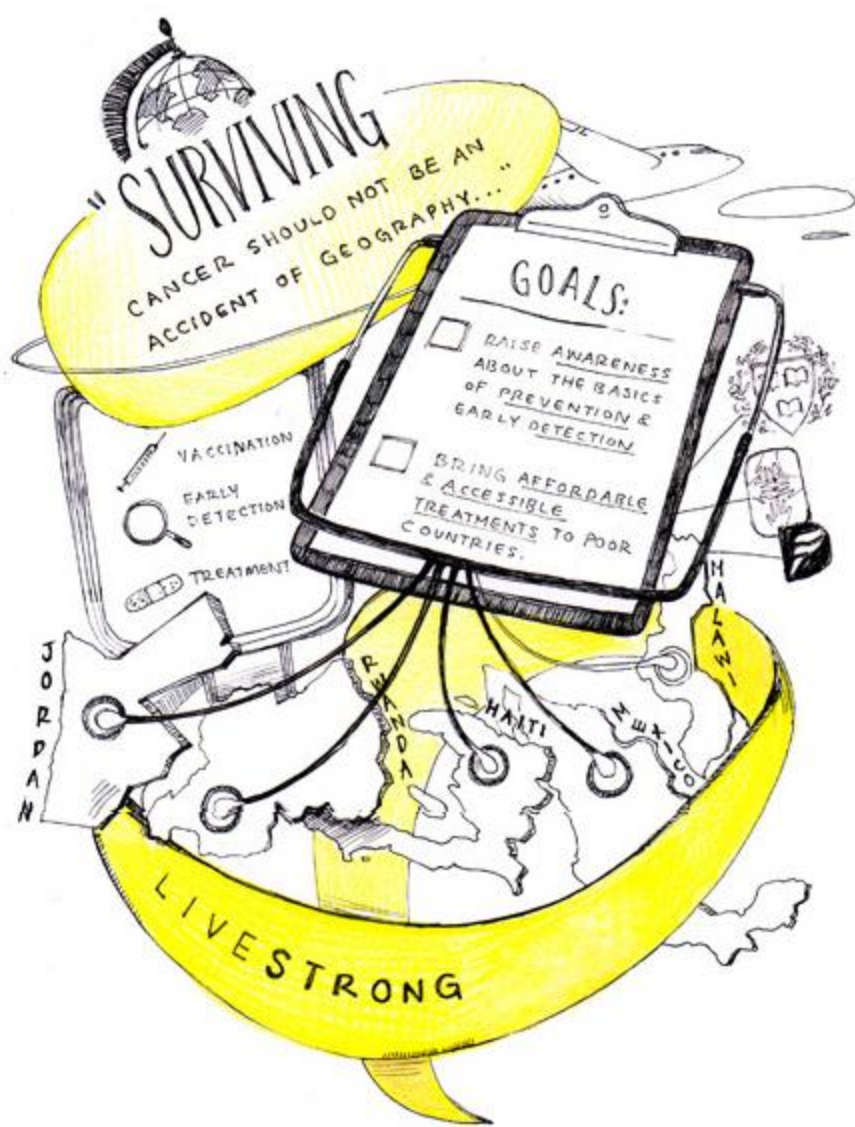 "SURVIVING
CANCER SHOULD NOT BE AN
ACCIDENT OF GEOGRAPHY..."
GOALS:
RAISE AWARENESS
ABOUT THE BASICS
OF PREVENTION &
EARLY DETECTION
BRING AFFORDABLE
& ACCESSIBLE
TREATMENTS TO POOR
COUNTRIES.
VACCINATION
EARLY
DETECTION
TREATMENT
JORDAN
RWANDA
HAITI
MEXICO
MALAWI
LIVESTRONG